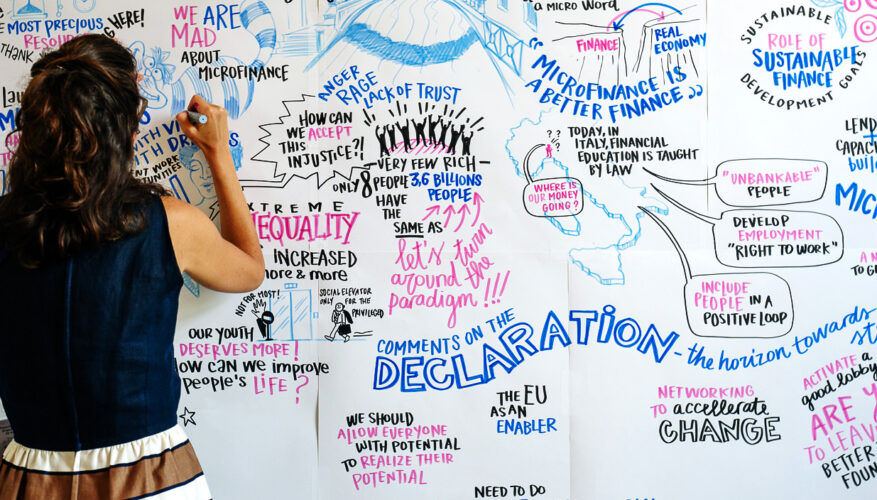 MOST PRECIOUS
RESOURCES
HERE!
THANK
WE ARE
MAD
ABOUT
MICROFINANCE
A MICRO WORD
FINANCE
REAL
ECONOMY
"MICROFINANCE IS
A BETTER FINANCE"
SUSTAINABLE
ROLE OF
SUSTAINABLE
FINANCE
DEVELOPMENT GOALS
ANGER
RAGE
LACK OF TRUST
HOW CAN
WE ACCEPT
THIS
INJUSTICE?!
VERY FEW RICH
ONLY 8 PEOPLE 3,6 BILLIONS
PEOPLE
HAVE
THE
SAME AS
let's turn
around the
paradigm!!!
WITH
WITH
EXTREME
INEQUALITY
INCREASED
more & more
NOT FOR MOST!
SOCIAL ELEVATOR
ONLY FOR THE
PRIVILEGED
OUR YOUTH
DESERVES MORE!
How can we improve
people's LIFE?
? ? ?
TODAY, IN
ITALY, FINANCIAL
EDUCATION IS TAUGHT
BY LAW
WHERE IS
OUR MONEY
GOING?
LEND
CAPAC
"UNBANKABLE"
PEOPLE
DEVELOP
EMPLOYMENT
"RIGHT TO WORK"
INCLUDE
PEOPLE IN A
POSITIVE LOOP
COMMENTS ON THE
DECLARATION
- the horizon towards
WE SHOULD
ALLOW EVERYONE
WITH POTENTIAL
TO REALIZE THEIR
POTENTIAL
THE EU
AS AN
ENABLER
NEED TO DO
NETWORKING
TO accelerate
CHANGE
ACTIVATE a
good lobby
ARE
TO LEAV
BETTER
FOUN